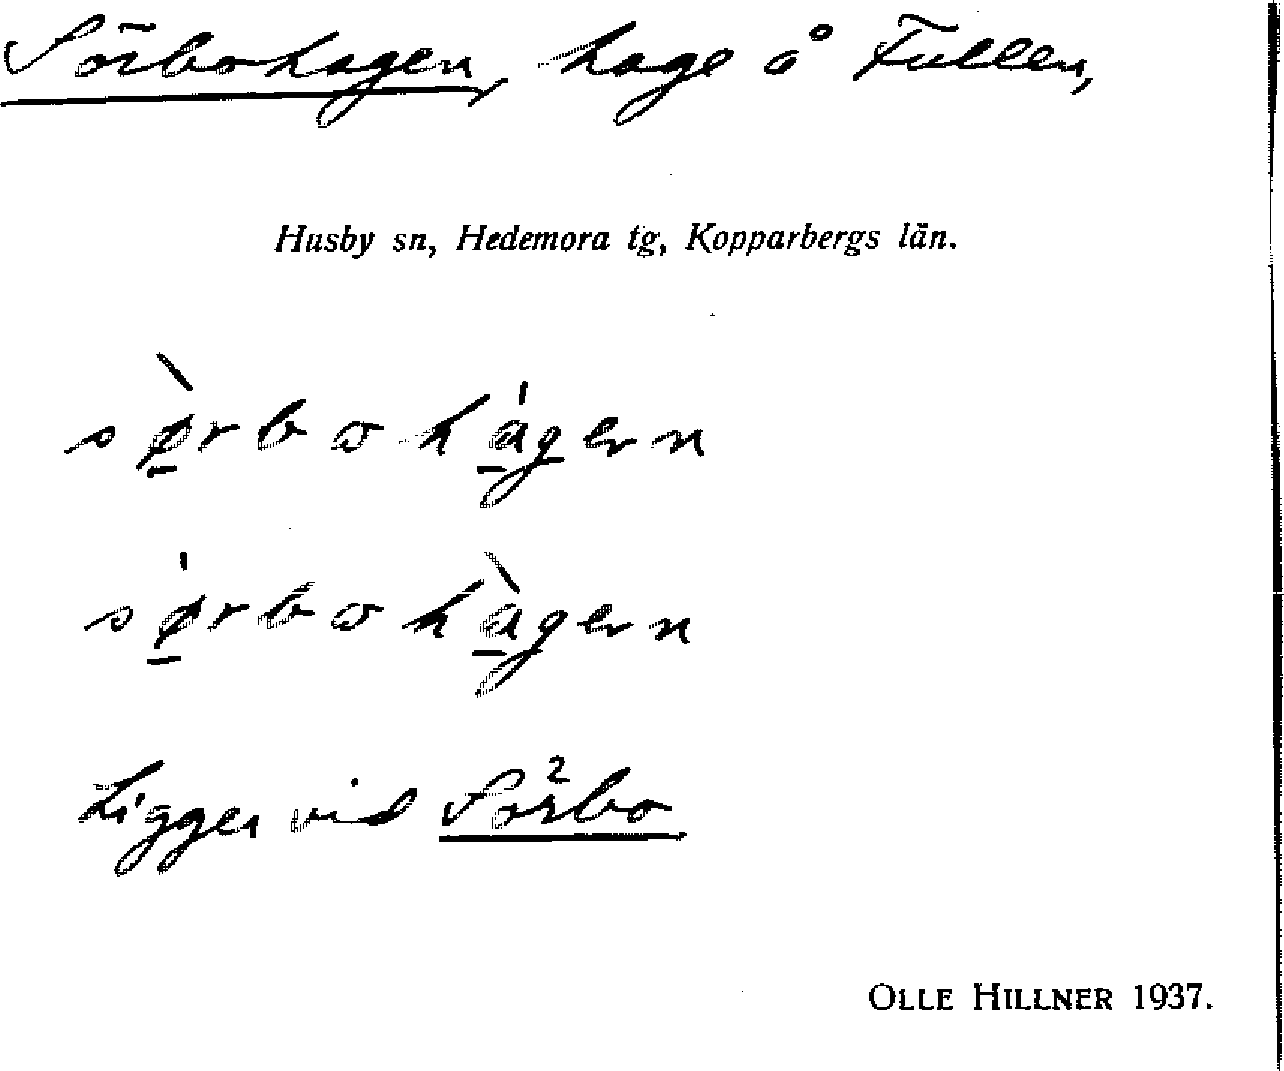 Sörbohagen, hage å Fullen,
Husby sn, Hedemora tg, Kopparbergs län.
sø̱̀rbohá̱gen
sǿ̱rbohà̱gen
Ligger vid Sörbo 2
OLLE HILLNER 1937.